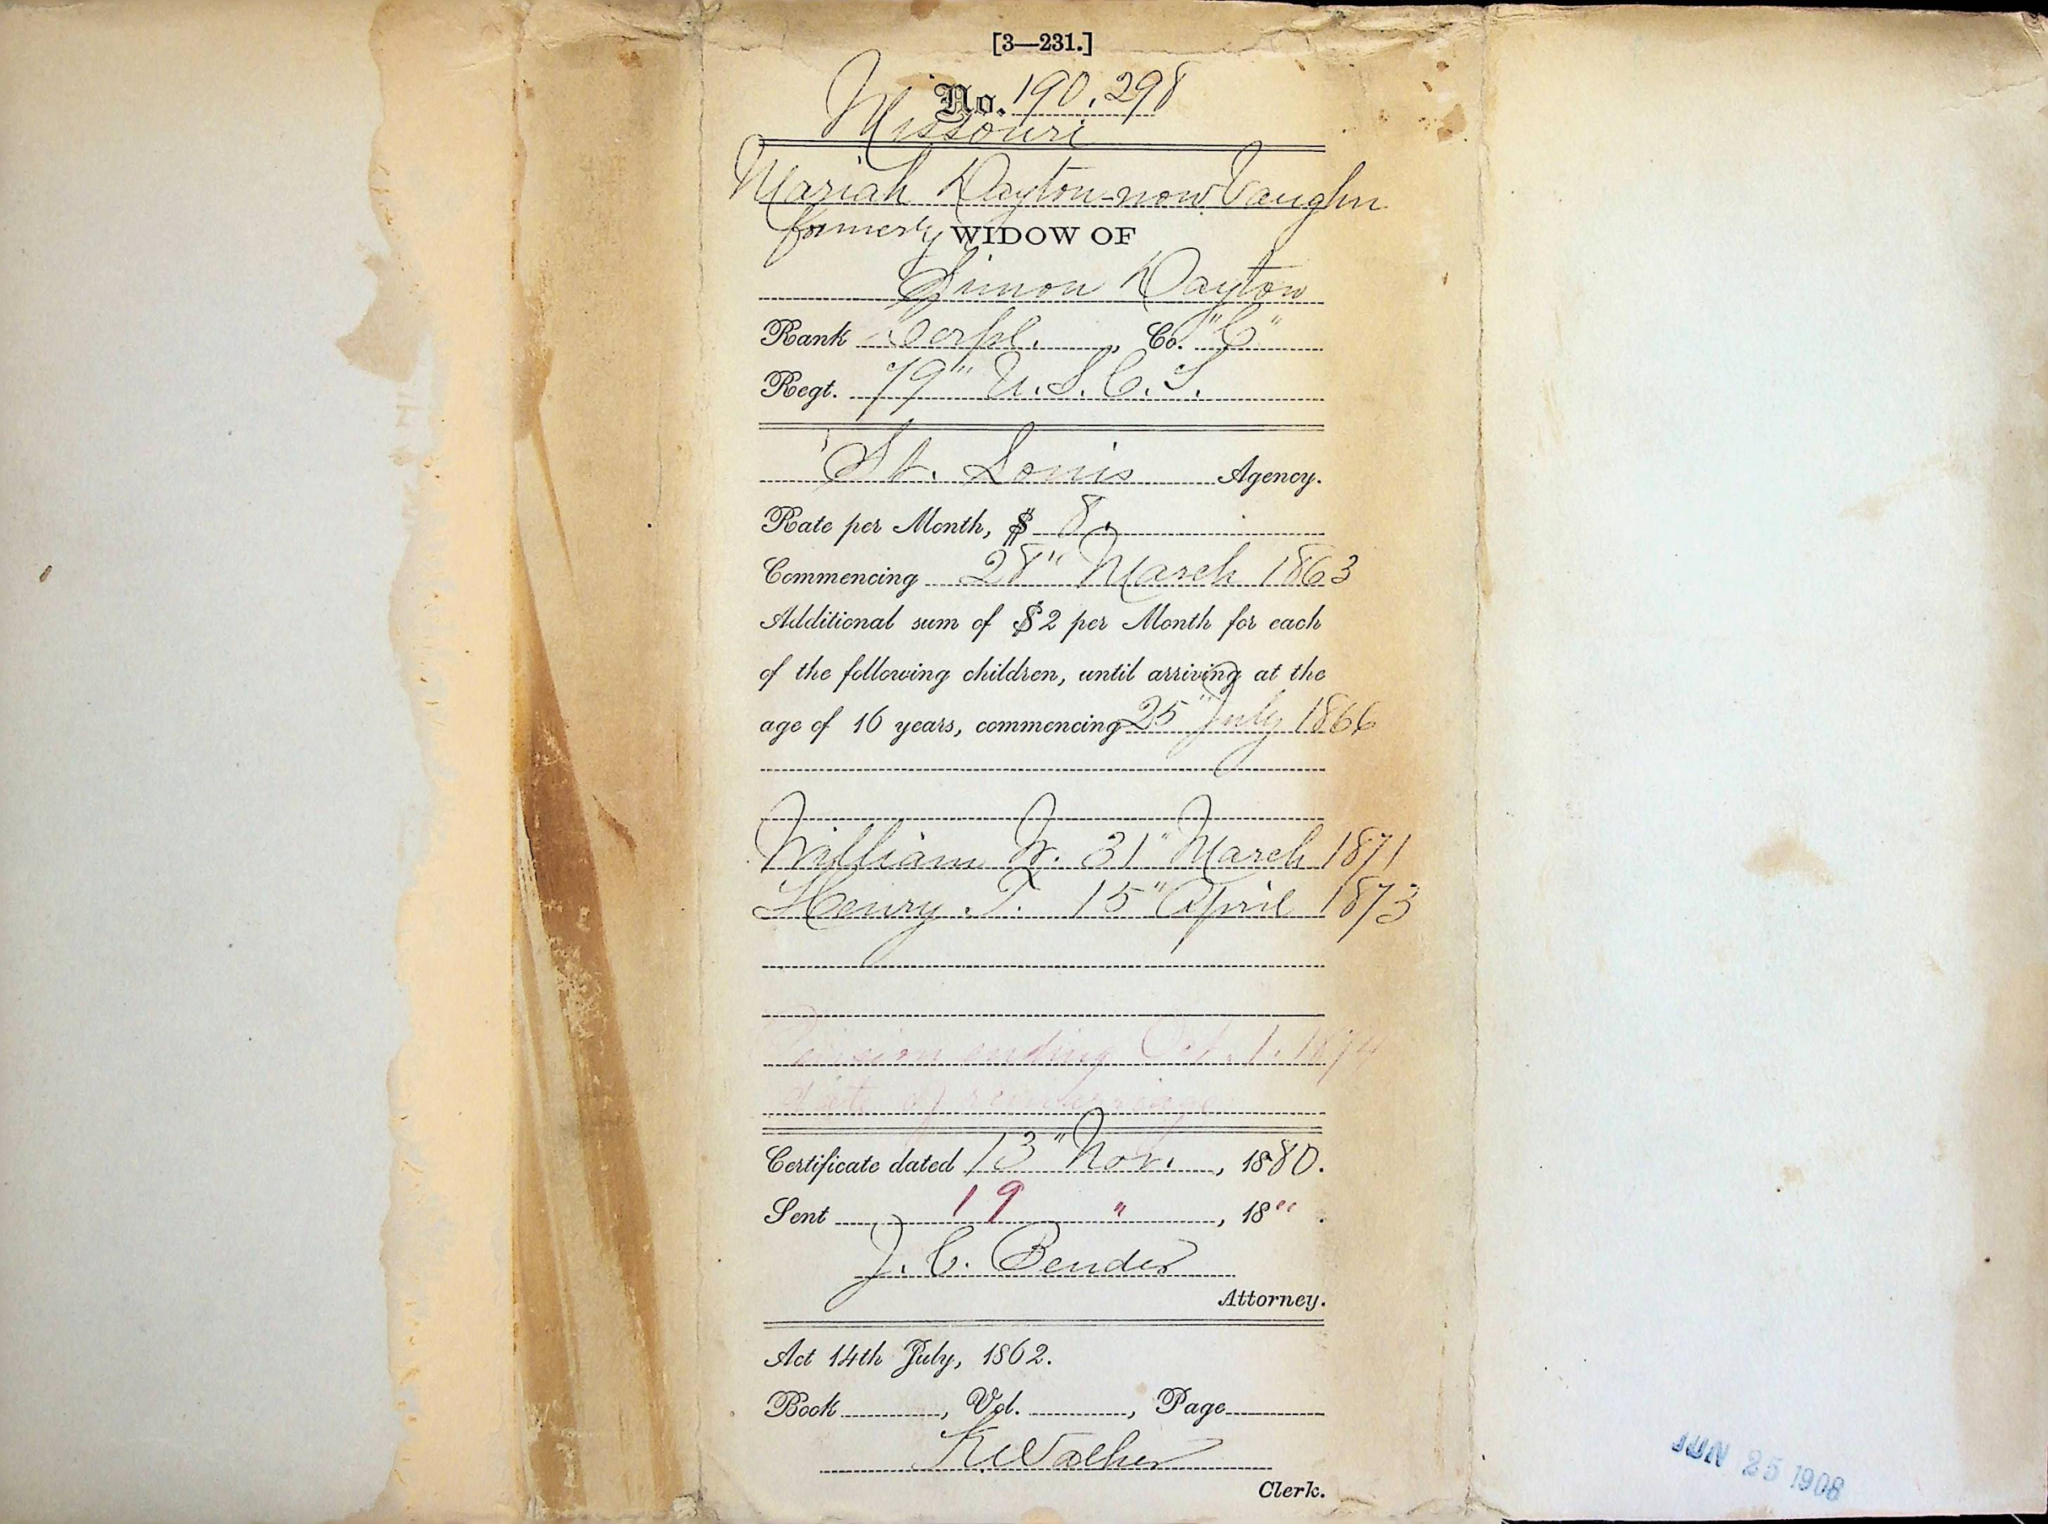 [3—231.]
No. 190.298
Missouri
Mariah Dayton now Vaughn
formerly WIDOW OF
Simon Dayton
Rank Corpl., Co. "C"
Regt. 79" U.S.C.T.
St. Louis Agency.
Rate per Month, $ 8.
Commencing 28" March 1863
Additional sum of $2 per Month for each
of the following children, until arriving at the
age of 16 years, commencing 25" July 1866
William W. 31" March 1871
Henry. T. 15" April 1873
Pension ending Oct. 1. 1874
date of remarriage
Certificate dated 13" Nov., 1880.
Sent 19 ", 18".
J. C. Bender
Attorney.
Act 14th July, 1862.
Book , Vol. , Page
Clerk.
JUN 25 1908